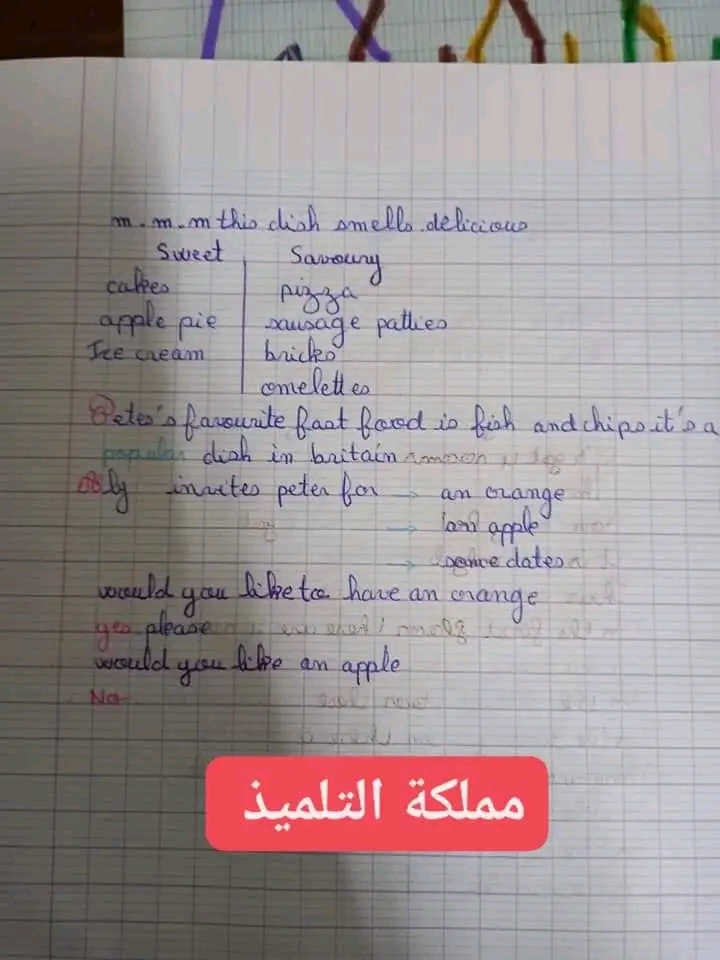 m.m.m this dish smells delicious
Sweet Savoury
cakes pizza
apple pie sausage patties
Ice cream bricks
omelettes
Peter's favourite fast food is fish and chips it's a
popular dish in britain
invites peter for → an orange
→ an apple
→ some dates
would you like to have an orange
yes please
would you like an apple
No
مملكة التلميذ